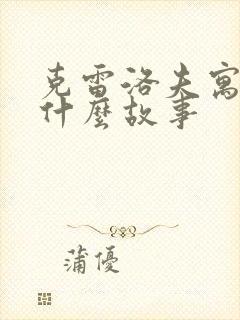 克雷洛夫寓
什麼故事
蒲優